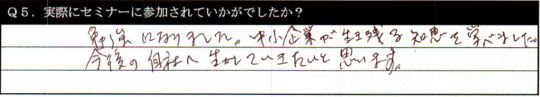 Q5. 実際にセミナーに参加されていかがでしたか？
勉強になりました。中小企業が生き残る知恵を学べました。
今後の自社へ生かしていきたいと思います。